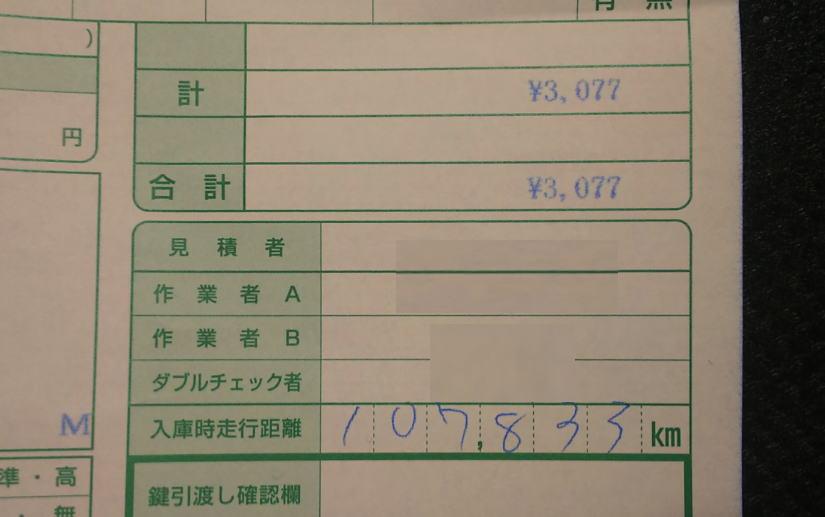 有 無
)
計 ¥3,077
円
合 計 ¥3,077
見 積 者
作 業 者 A
作 業 者 B
ダブルチェック者
M
入庫時走行距離 107,833 km
準・高
鍵引渡し確認欄
・無